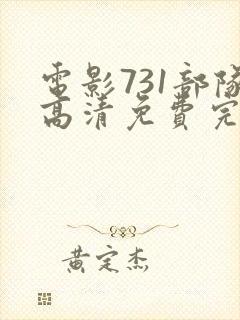 電影731部隊
高清免費完
黄定杰